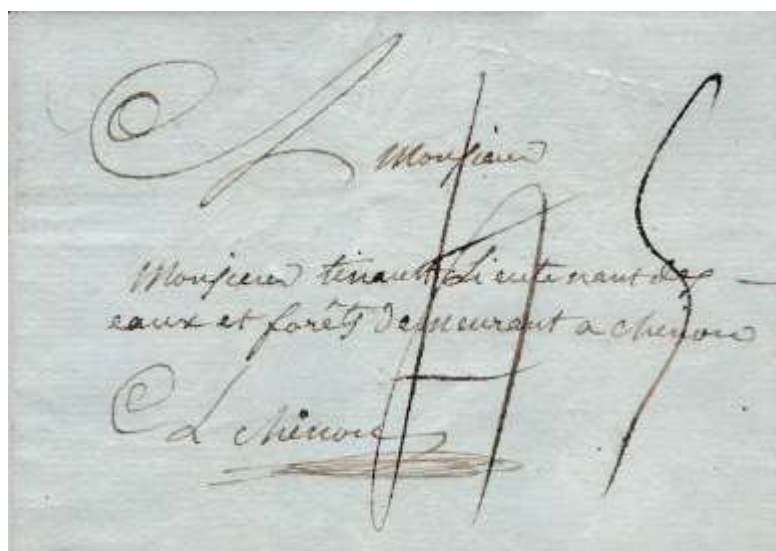 A Monsieur
Monsieur tinault Lieutenant des
eaux et forêts demeurant a chinon
a chinon